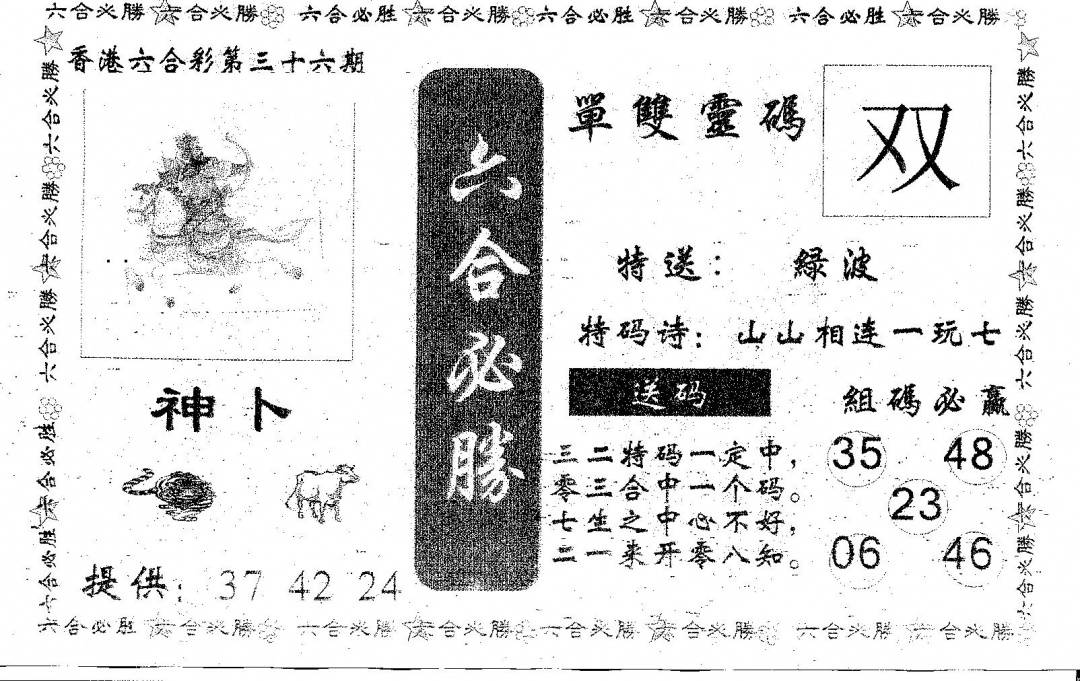 六合必胜 六合必勝 六合必胜 六合必勝 六合必胜 六合必勝 六合必胜 六合必勝
香港六合彩第三十六期
六合必勝
單雙靈碼
双
特送： 緑波
特码诗：山山相连一玩七
送码
三二特码一定中，
零三合中一个码。
七生之中心不好，
二一来开零八知。
組碼必贏
35 48
23
06 46
神卜
提供：37 42 24
六合必勝 六合必勝 六合必勝 六合必勝
六合必勝 六合必勝 六合必勝 六合必勝
六合必胜 六合必勝 六合必勝 六合必勝 六合必勝 六合必勝 六合必勝 六合必勝